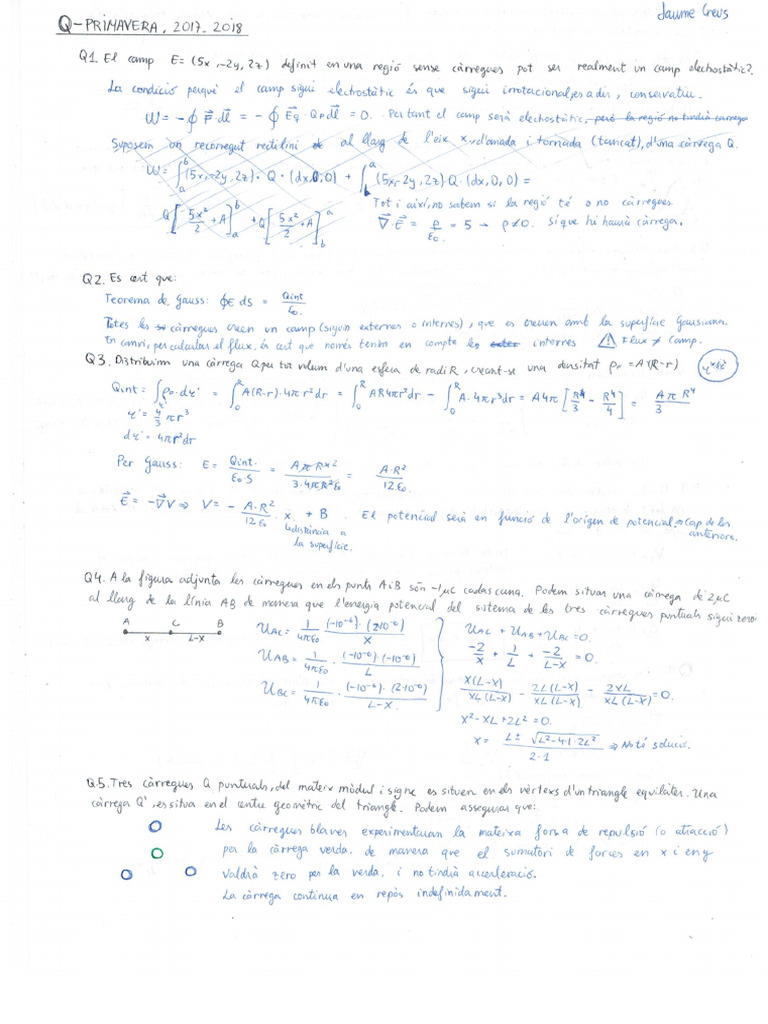 Jaume Creus
Q-PRIMAVERA, 2017-2018
Q1. El camp E=(5x,-2y,2z) definit en una regió sense càrregues pot ser realment un camp electrostàtic?
La condició perquè el camp sigui electrostàtic és que sigui irrotacional, és a dir, conservatiu.
W = -∮ F⃗·dl⃗ = -∮ E⃗q·Qp dl⃗ = 0. Per tant el camp serà electrostàtic, però la regió no tindrà càrrega
Suposem un recorregut rectilini al llarg de l'eix x, d'anada i tornada (tancat), d'una càrrega Q.
W = ∫_a^b (5x,-2y,2z)·Q·(dx,0,0) + ∫_b^a (5x,-2y,2z)·Q·(dx,0,0) =
Q[5x²/2 + A]_a^b + Q[5x²/2 + A]_b^a
Tot i així, no sabem si la regió té o no càrregues
∇⃗·E⃗ = ρ/ε₀ = 5 → ρ≠0. Sí que hi haurà càrrega.
Q2. Es cert que:
Teorema de Gauss: ∮E ds = Qint/ε₀
Totes les càrregues creen un camp (siguin externes o internes), que es creuen amb la superfície Gaussiana.
En canvi, per calcular el flux, és cert que només tenim en compte les internes ⚠ Flux ≠ Camp.
Q3. Distribuïm una càrrega Q per tot volum d'una esfera de radi R, creant-se una densitat ρv = A·(R-r)
Qint = ∫ρv·dτ' = ∫_0^R A(R-r)·4πr²dr = ∫_0^R AR4πr²dr - ∫_0^R A·4πr³dr = A4π[R⁴/3 - R⁴/4] = AπR⁴/3
τ' = 4/3 πr³
dτ' = 4πr²dr
Per Gauss: E = Qint/ε₀·S = AπR⁴/3·4πR²ε₀ = A·R²/12ε₀
E⃗ = -∇⃗V ⇒ V = - A·R²/12ε₀ · x + B. El potencial serà en funció de l'origen de potencial ⇒ Cap de les anteriors.
↳distància a
la superfície.
Q4. A la figura adjunta les càrregues en els punts A i B són -1μC cadascuna. Podem situar una càrrega de 2μC
al llarg de la línia AB de manera que l'energia potencial del sistema de les tres càrregues puntuals sigui zero?
A C B
x L-x
U_AC = 1/4πε₀ · (-10⁻⁶)·(2·10⁻⁶)/x
U_AB = 1/4πε₀ · (-10⁻⁶)·(-10⁻⁶)/L
U_BC = 1/4πε₀ · (-10⁻⁶)·(2·10⁻⁶)/L-x
U_AC + U_AB + U_BC = 0.
-2/x + 1/L + -2/L-x = 0.
x(L-x)/xL(L-x) - 2L(L-x)/xL(L-x) - 2xL/xL(L-x) = 0.
x²-xL+2L² = 0.
x = L ± √L²-4·1·2L²/2·1 ⇒ No té solució.
Q5. Tres càrregues Q puntuals, del mateix mòdul i signe es situen en els vèrtexs d'un triangle equilàter. Una
càrrega Q', es situa en el centre geomètric del triangle. Podem assegurar que:
Les càrregues blaves experimentaran la mateixa força de repulsió (o atracció)
per la càrrega verda, de manera que el sumatori de forces en x i en y
valdrà zero per la verda, i no tindrà acceleració.
La càrrega continua en repòs indefinidament.